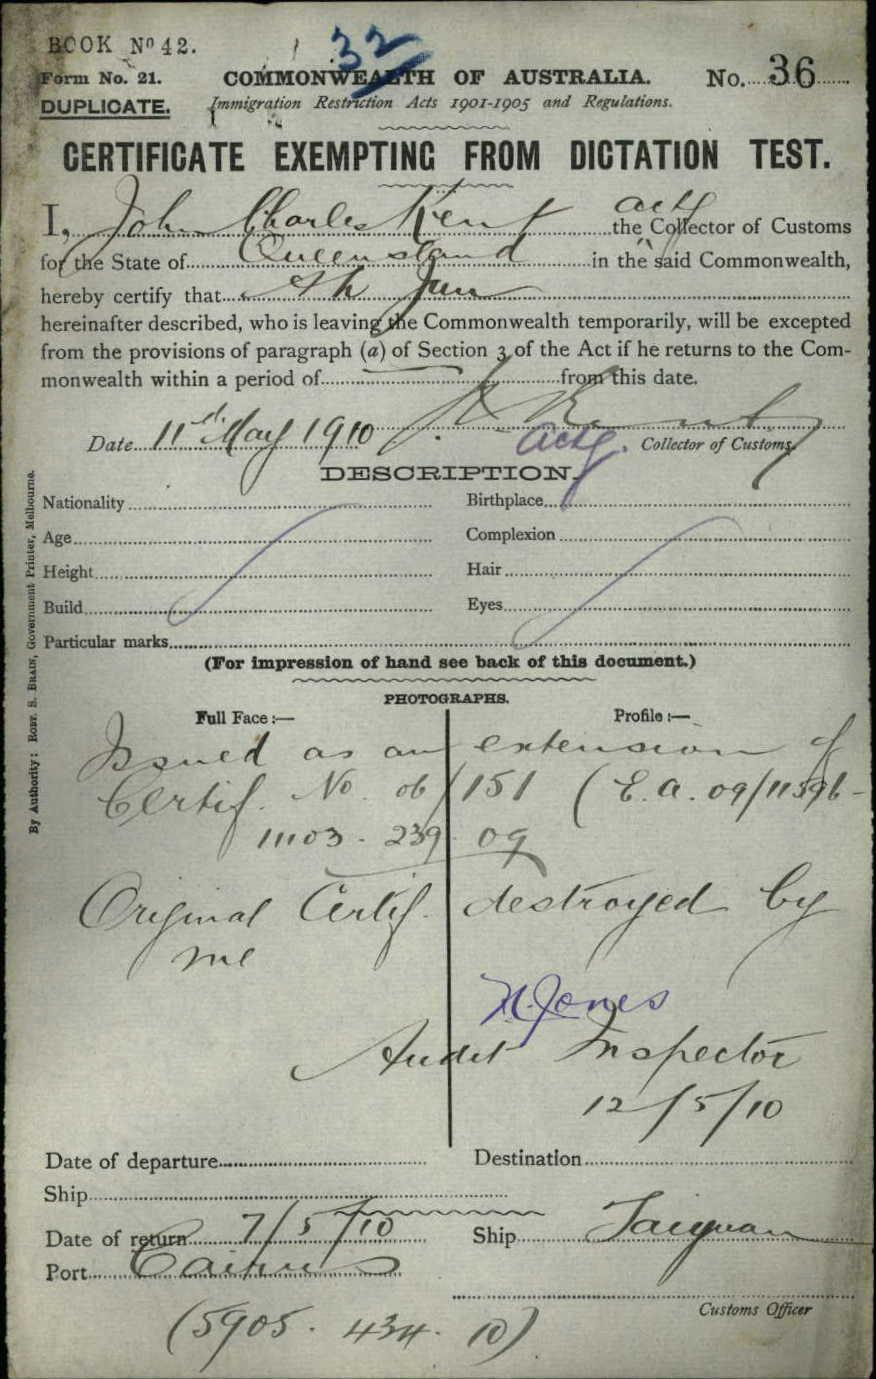 BOOK Nº 42.
32
Form No. 21.
COMMONWEALTH OF AUSTRALIA.
No. 36
DUPLICATE.
Immigration Restriction Acts 1901-1905 and Regulations.
CERTIFICATE EXEMPTING FROM DICTATION TEST.
actg
I, John Charles Kent the Collector of Customs
for the State of Queensland in the said Commonwealth,
hereby certify that Ah Jun
hereinafter described, who is leaving the Commonwealth temporarily, will be excepted
from the provisions of paragraph (a) of Section 3 of the Act if he returns to the Com-
monwealth within a period of from this date.
Date 11th May 1910 Kent
actg. Collector of Customs.
DESCRIPTION.
Nationality Birthplace
Age Complexion
Height Hair
Build Eyes
Particular marks
(For impression of hand see back of this document.)
PHOTOGRAPHS.
Full Face:— Profile:—
Issued as an extension of
Certif. No. 06/151 (E.a. 09/11596-
11103 - 239 09
Original Certif. destroyed by
me
H. Jones
Audit Inspector
12/5/10
Date of departure Destination
Ship
Date of return 7/5/10 Ship Taiyuan
Port Cairns
Customs Officer
(5905. 434. 10)
By Authority: ROBT. S. BRAIN, Government Printer, Melbourne.